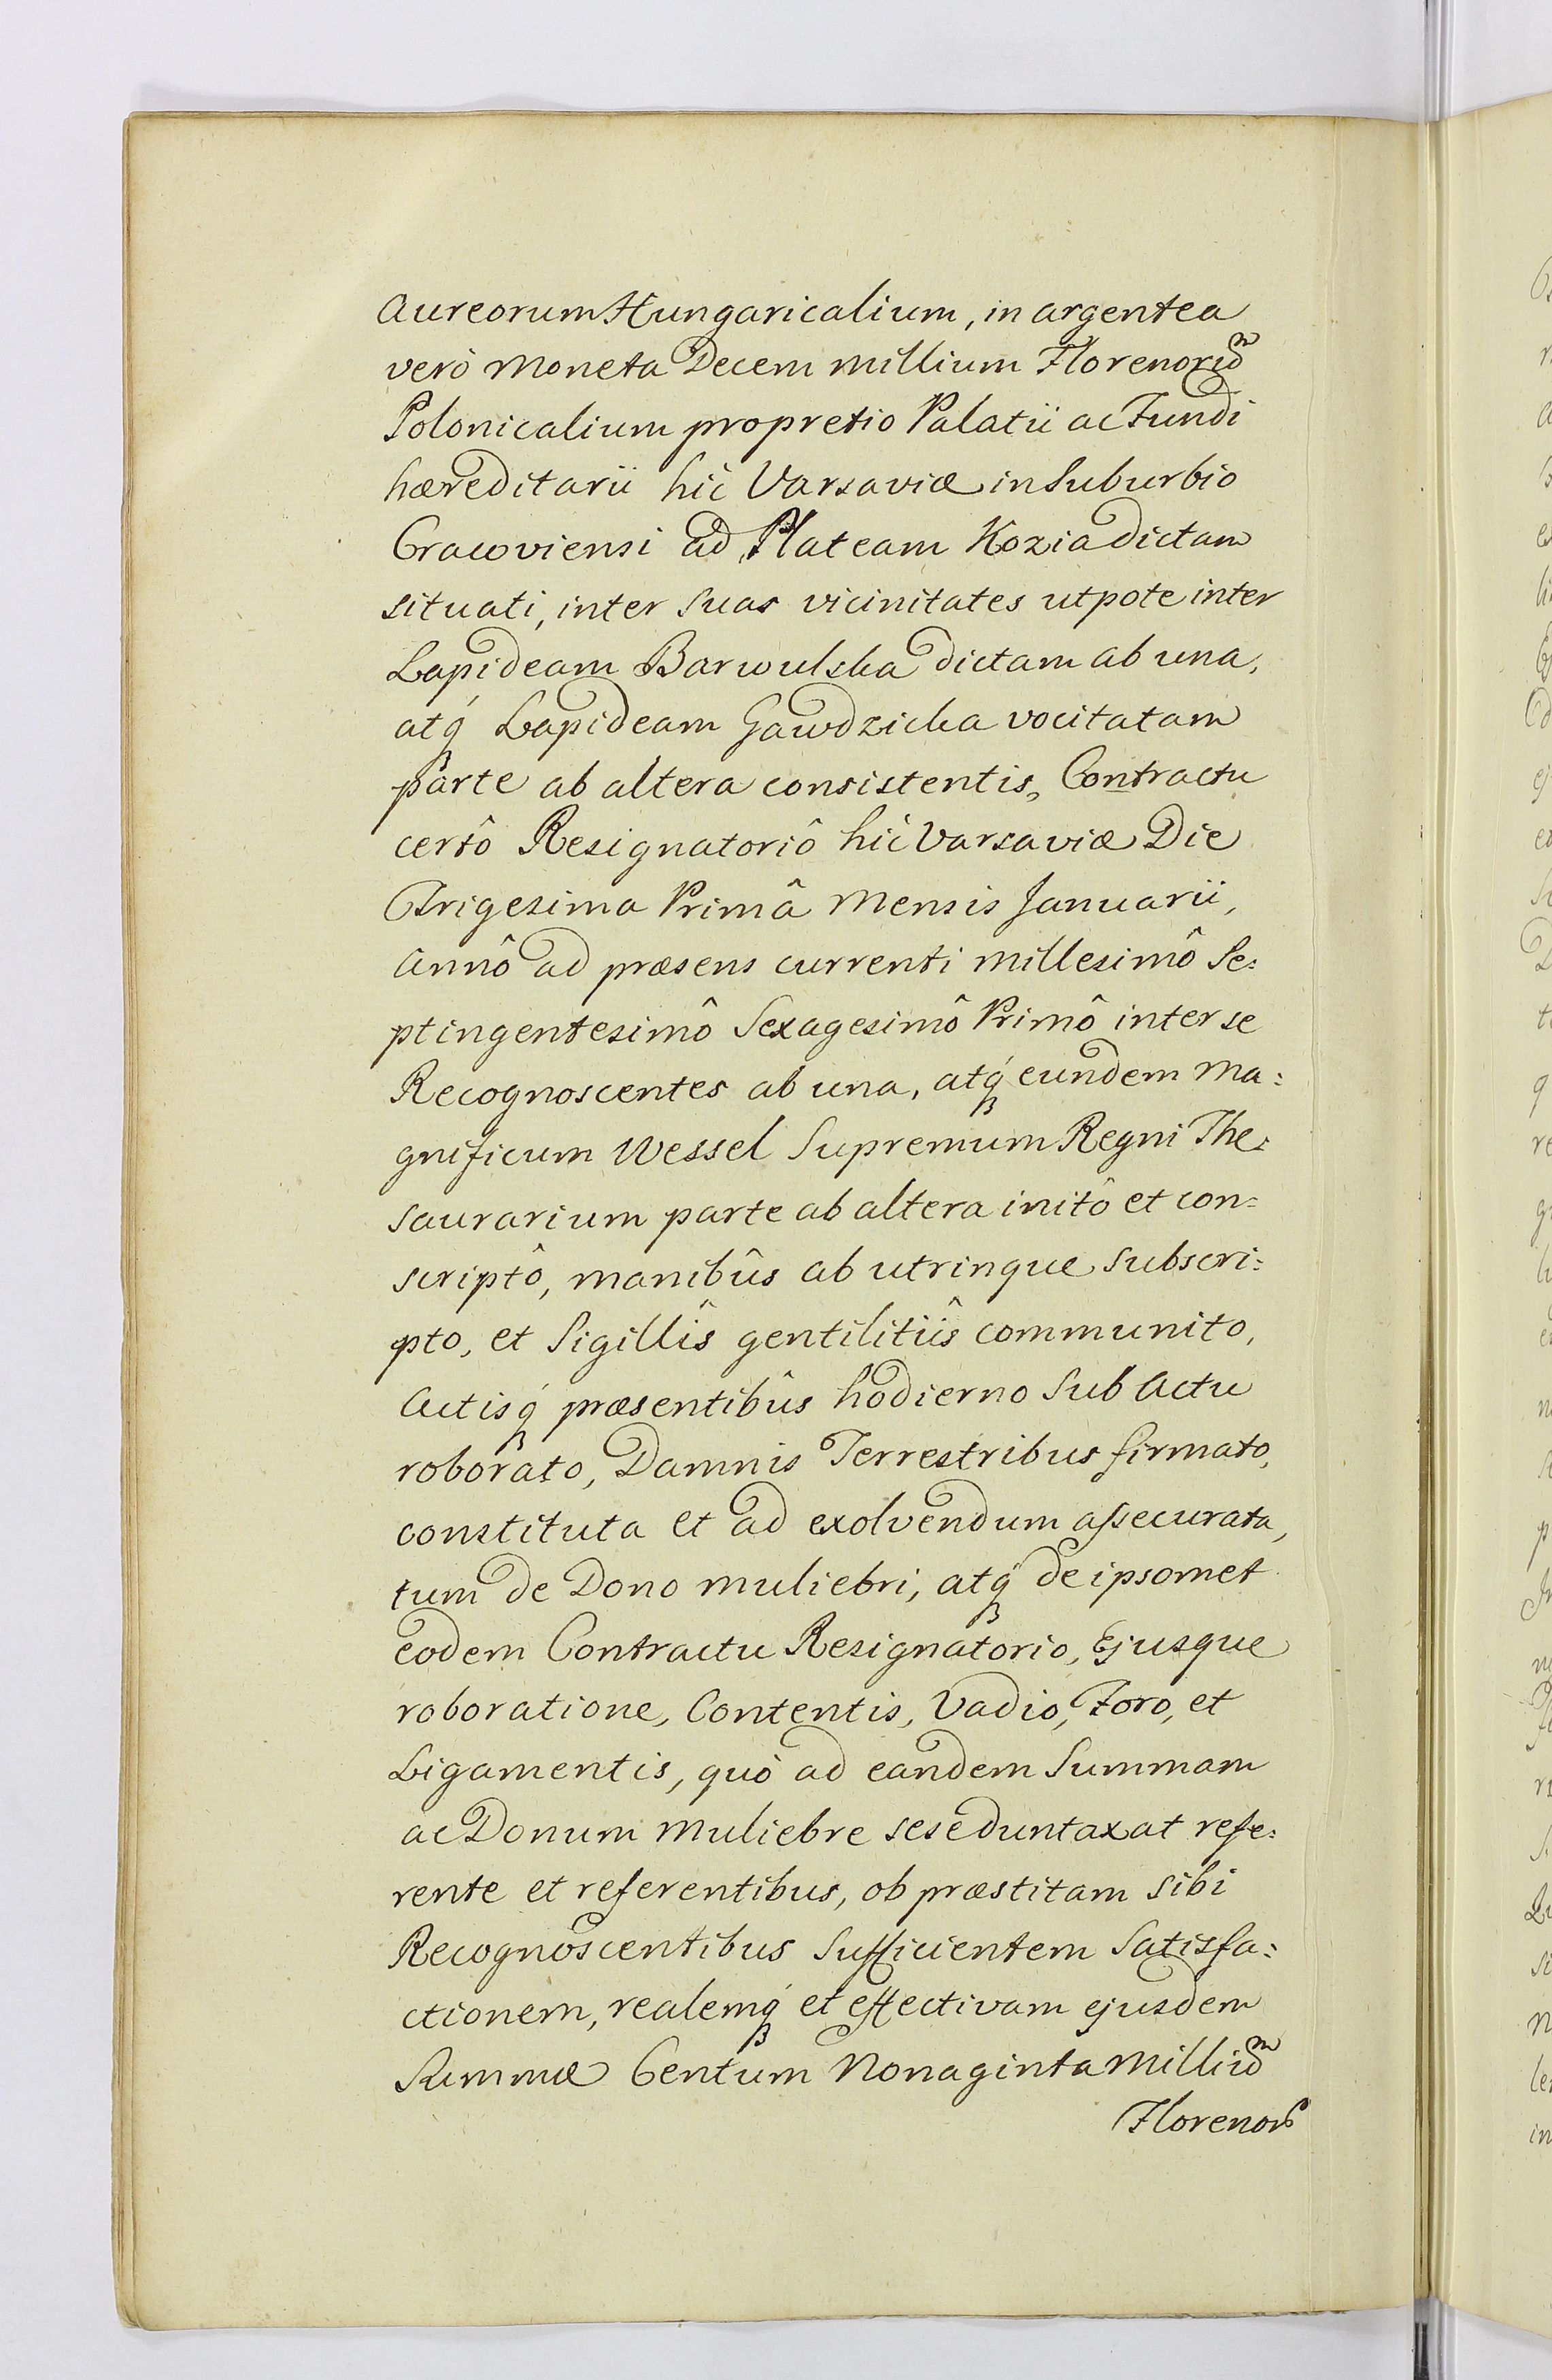 Aureorum Hungaricalium, in argentea
verò Moneta Decem millium Florenorũ
Polonicalium pro pretio Palatii ac Fundi
hæreditarii hic Varsaviæ in Suburbio
Cracoviensi ad Plateam Kozia dictam
situati, inter suas vicinitates utpote inter
Lapideam Barwulska dictam ab una,
atq́ Lapideam Gawdzicka vocitatam
parte ab altera consistentis, Contractu
certô Resignatoriô hic Varsaviæ Die
Trigesima Primâ Mensis Januarii,
Annô ad præsens currenti millesimô Se:
ptingentesimô Sexagesimô Primô inter se
Recognoscentes ab una, atq́ eundem Ma:
gnificum Wessel Supremum Regni The:
saurarium parte ab altera initô et con:
scriptô, manibûs ab utrinque subscri:
pto, et Sigillîs gentilitiîs communito,
Actisq́ præsentibûs hodierno sub Actu
roborato, Damnis Terrestribus firmato,
constituta et ad exolvendum assecurata,
tum de Dono muliebri, atq́ de ipsomet
eodem Contractu Resignatorio, Ejusque
roboratione, Contentis, Vadio, Foro, et
Ligamentis, quò ad eandem Summam
ac Donum muliebre sese duntaxat refe:
rente et referentibus, ob præstitam sibi
Recognoscentibus sufficientem Satisfa:
ctionem, realemq́ et effectivam ejusdem
Summæ Centum Nonaginta Milliũ
Florenor